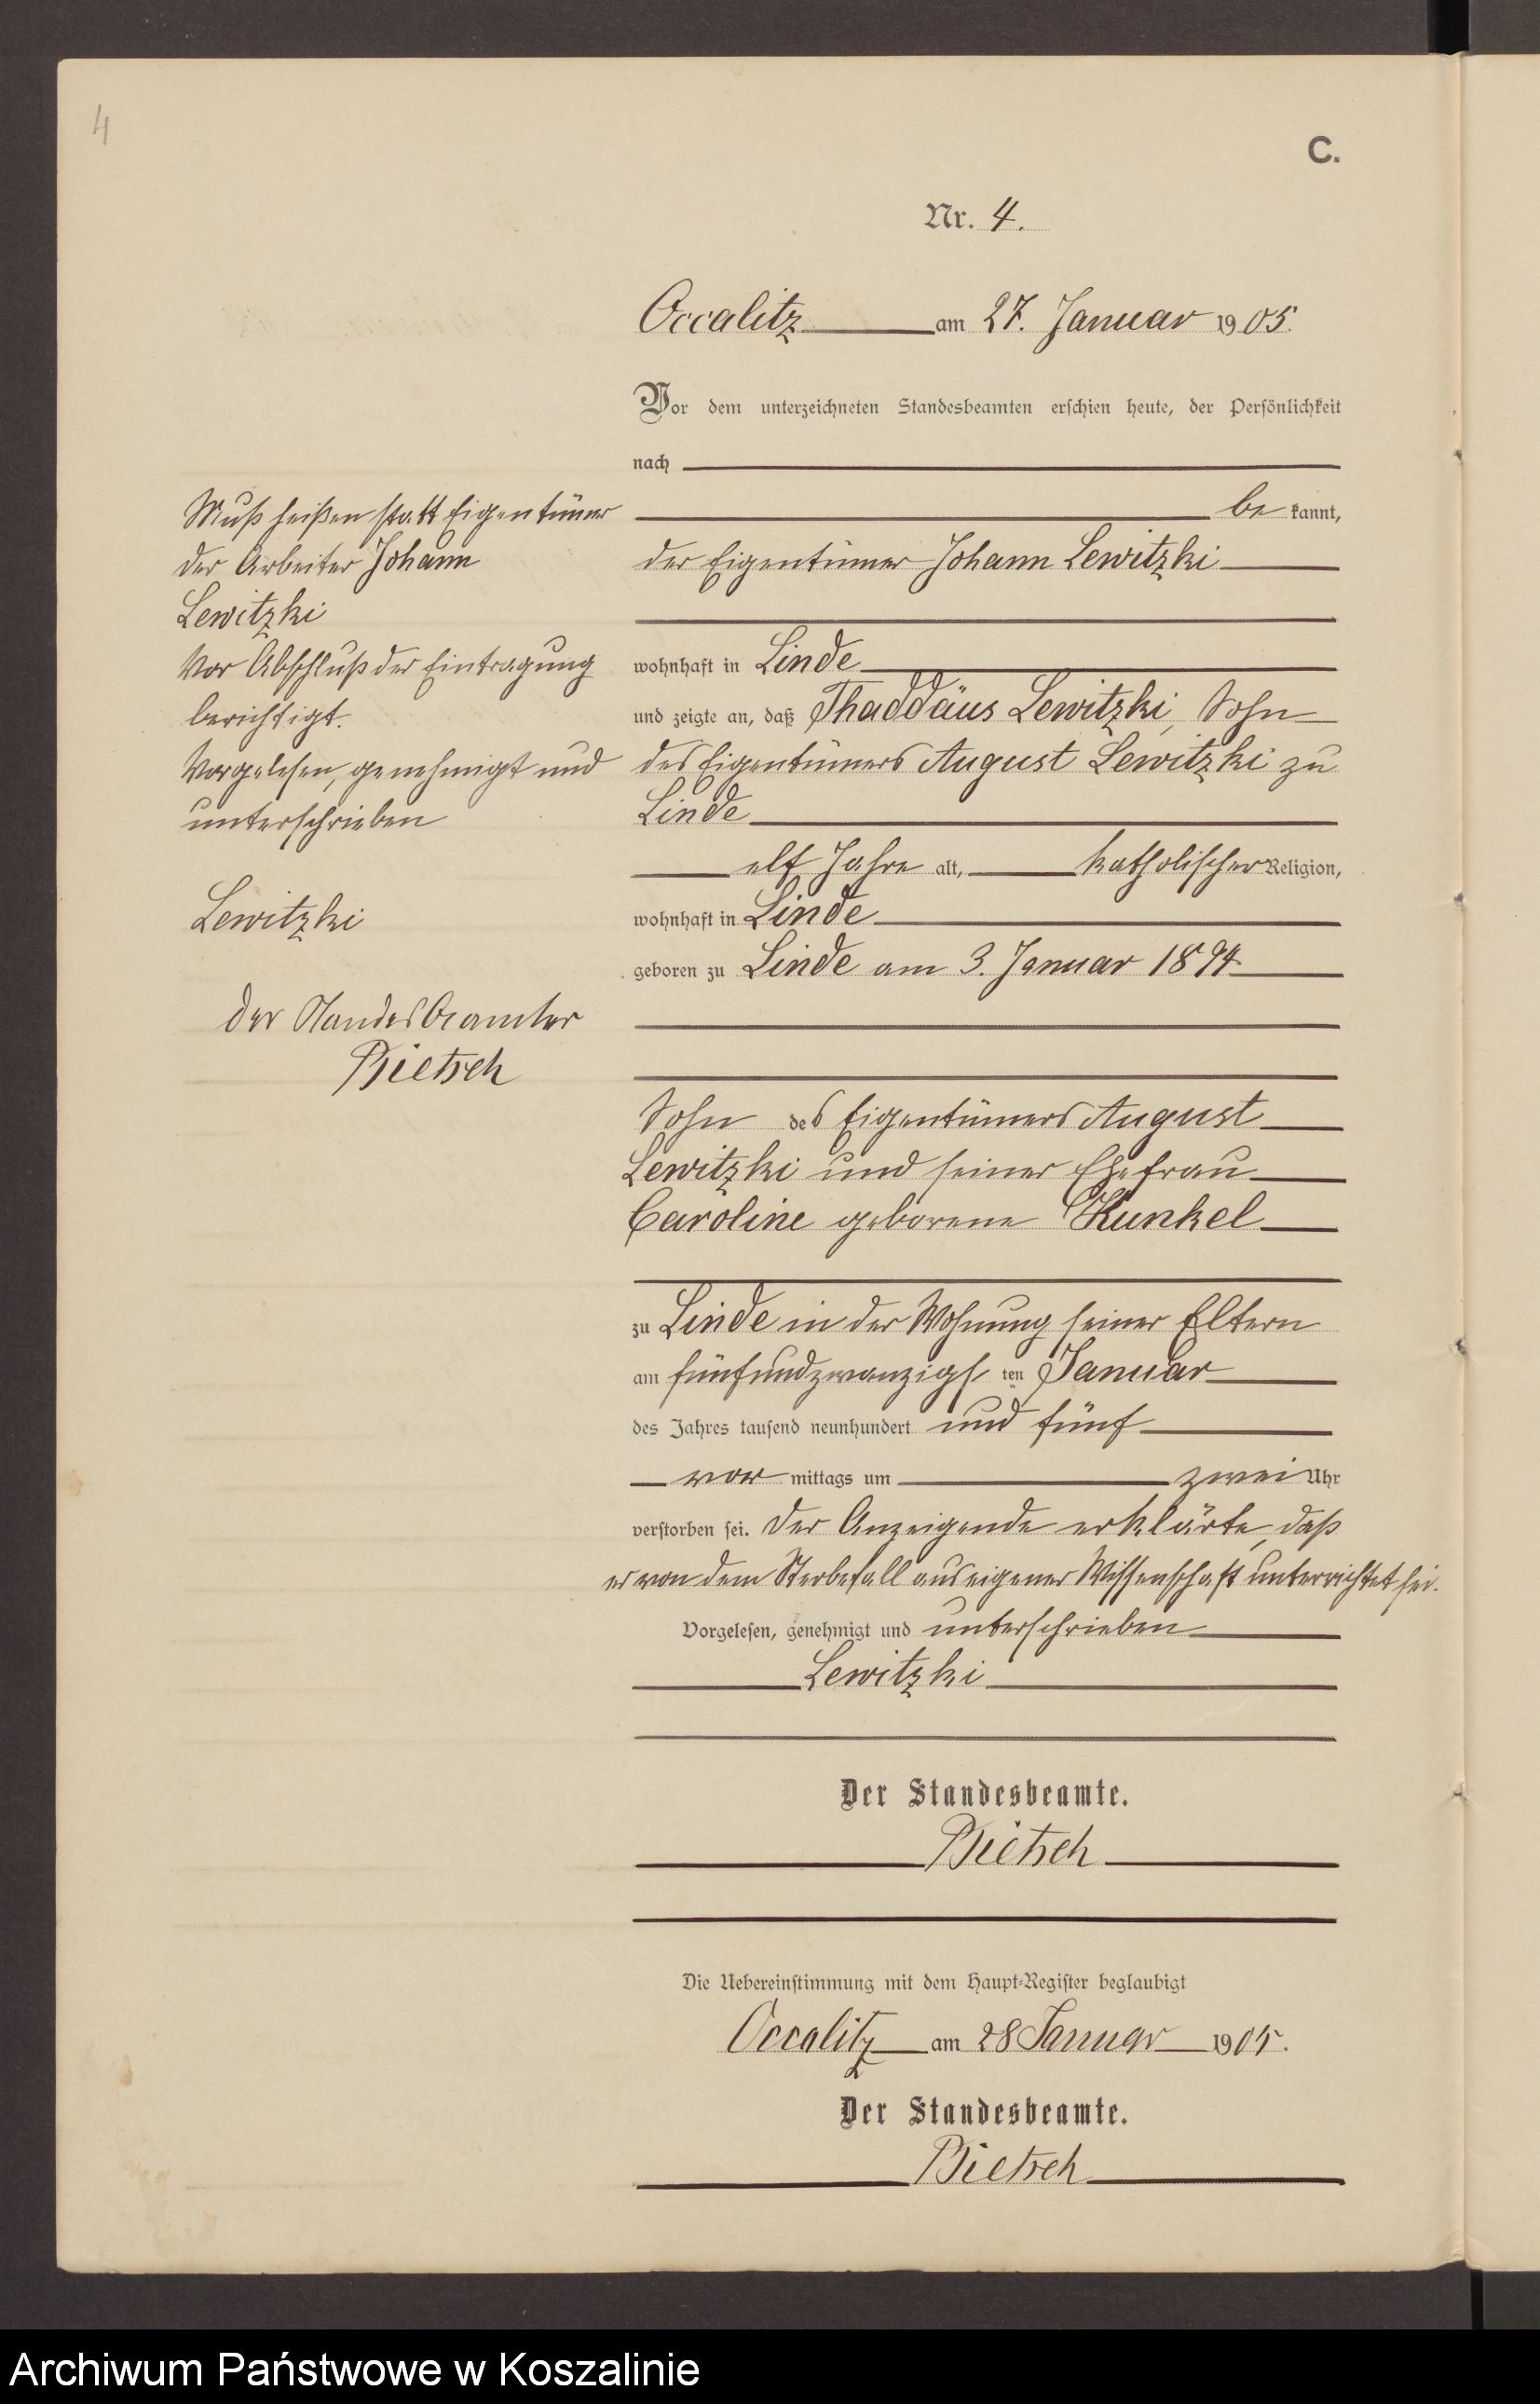 4
C.
Nr. 4.
Occalitz am 27. Januar 1905.
Vor dem unterzeichneten Standesbeamten erschien heute, der Persönlichkeit
nach
be kannt,
der Eigentümer Johann Lewitzki
wohnhaft in Linde
und zeigte an, daß Thaddäus Lewitzki, Sohn
des Eigentümers August Lewitzki zu
Linde
elf Jahre alt, katholischer Religion,
wohnhaft in Linde
geboren zu Linde am 3. Januar 1894
Sohn des Eigentümers August
Lewitzki und seiner Ehefrau
Caroline geborene Kunkel
zu Linde in der Wohnung seiner Eltern
am fünfundzwanzigsten Januar
des Jahres tausend neunhundert und fünf
vor mittags um zwei Uhr
verstorben sei. Der Anzeigende erklärte, daß
er von dem Sterbefall aus eigener Wissenschaft unterrichtet sei.
Vorgelesen, genehmigt und unterschrieben
Lewitzki
Der Standesbeamte.
Bietsch
Die Uebereinstimmung mit dem Haupt-Register beglaubigt
Occalitz am 28 Januar 1905.
Der Standesbeamte.
Bietsch
Muß heißen statt Eigentümer
der Arbeiter Johann
Lewitzki
Vor Abschluß der Eintragung
berichtigt.
Vorgelesen, genehmigt und
unterschrieben
Lewitzki
Der Standesbeamte
Bietsch
Archiwum Państwowe w Koszalinie